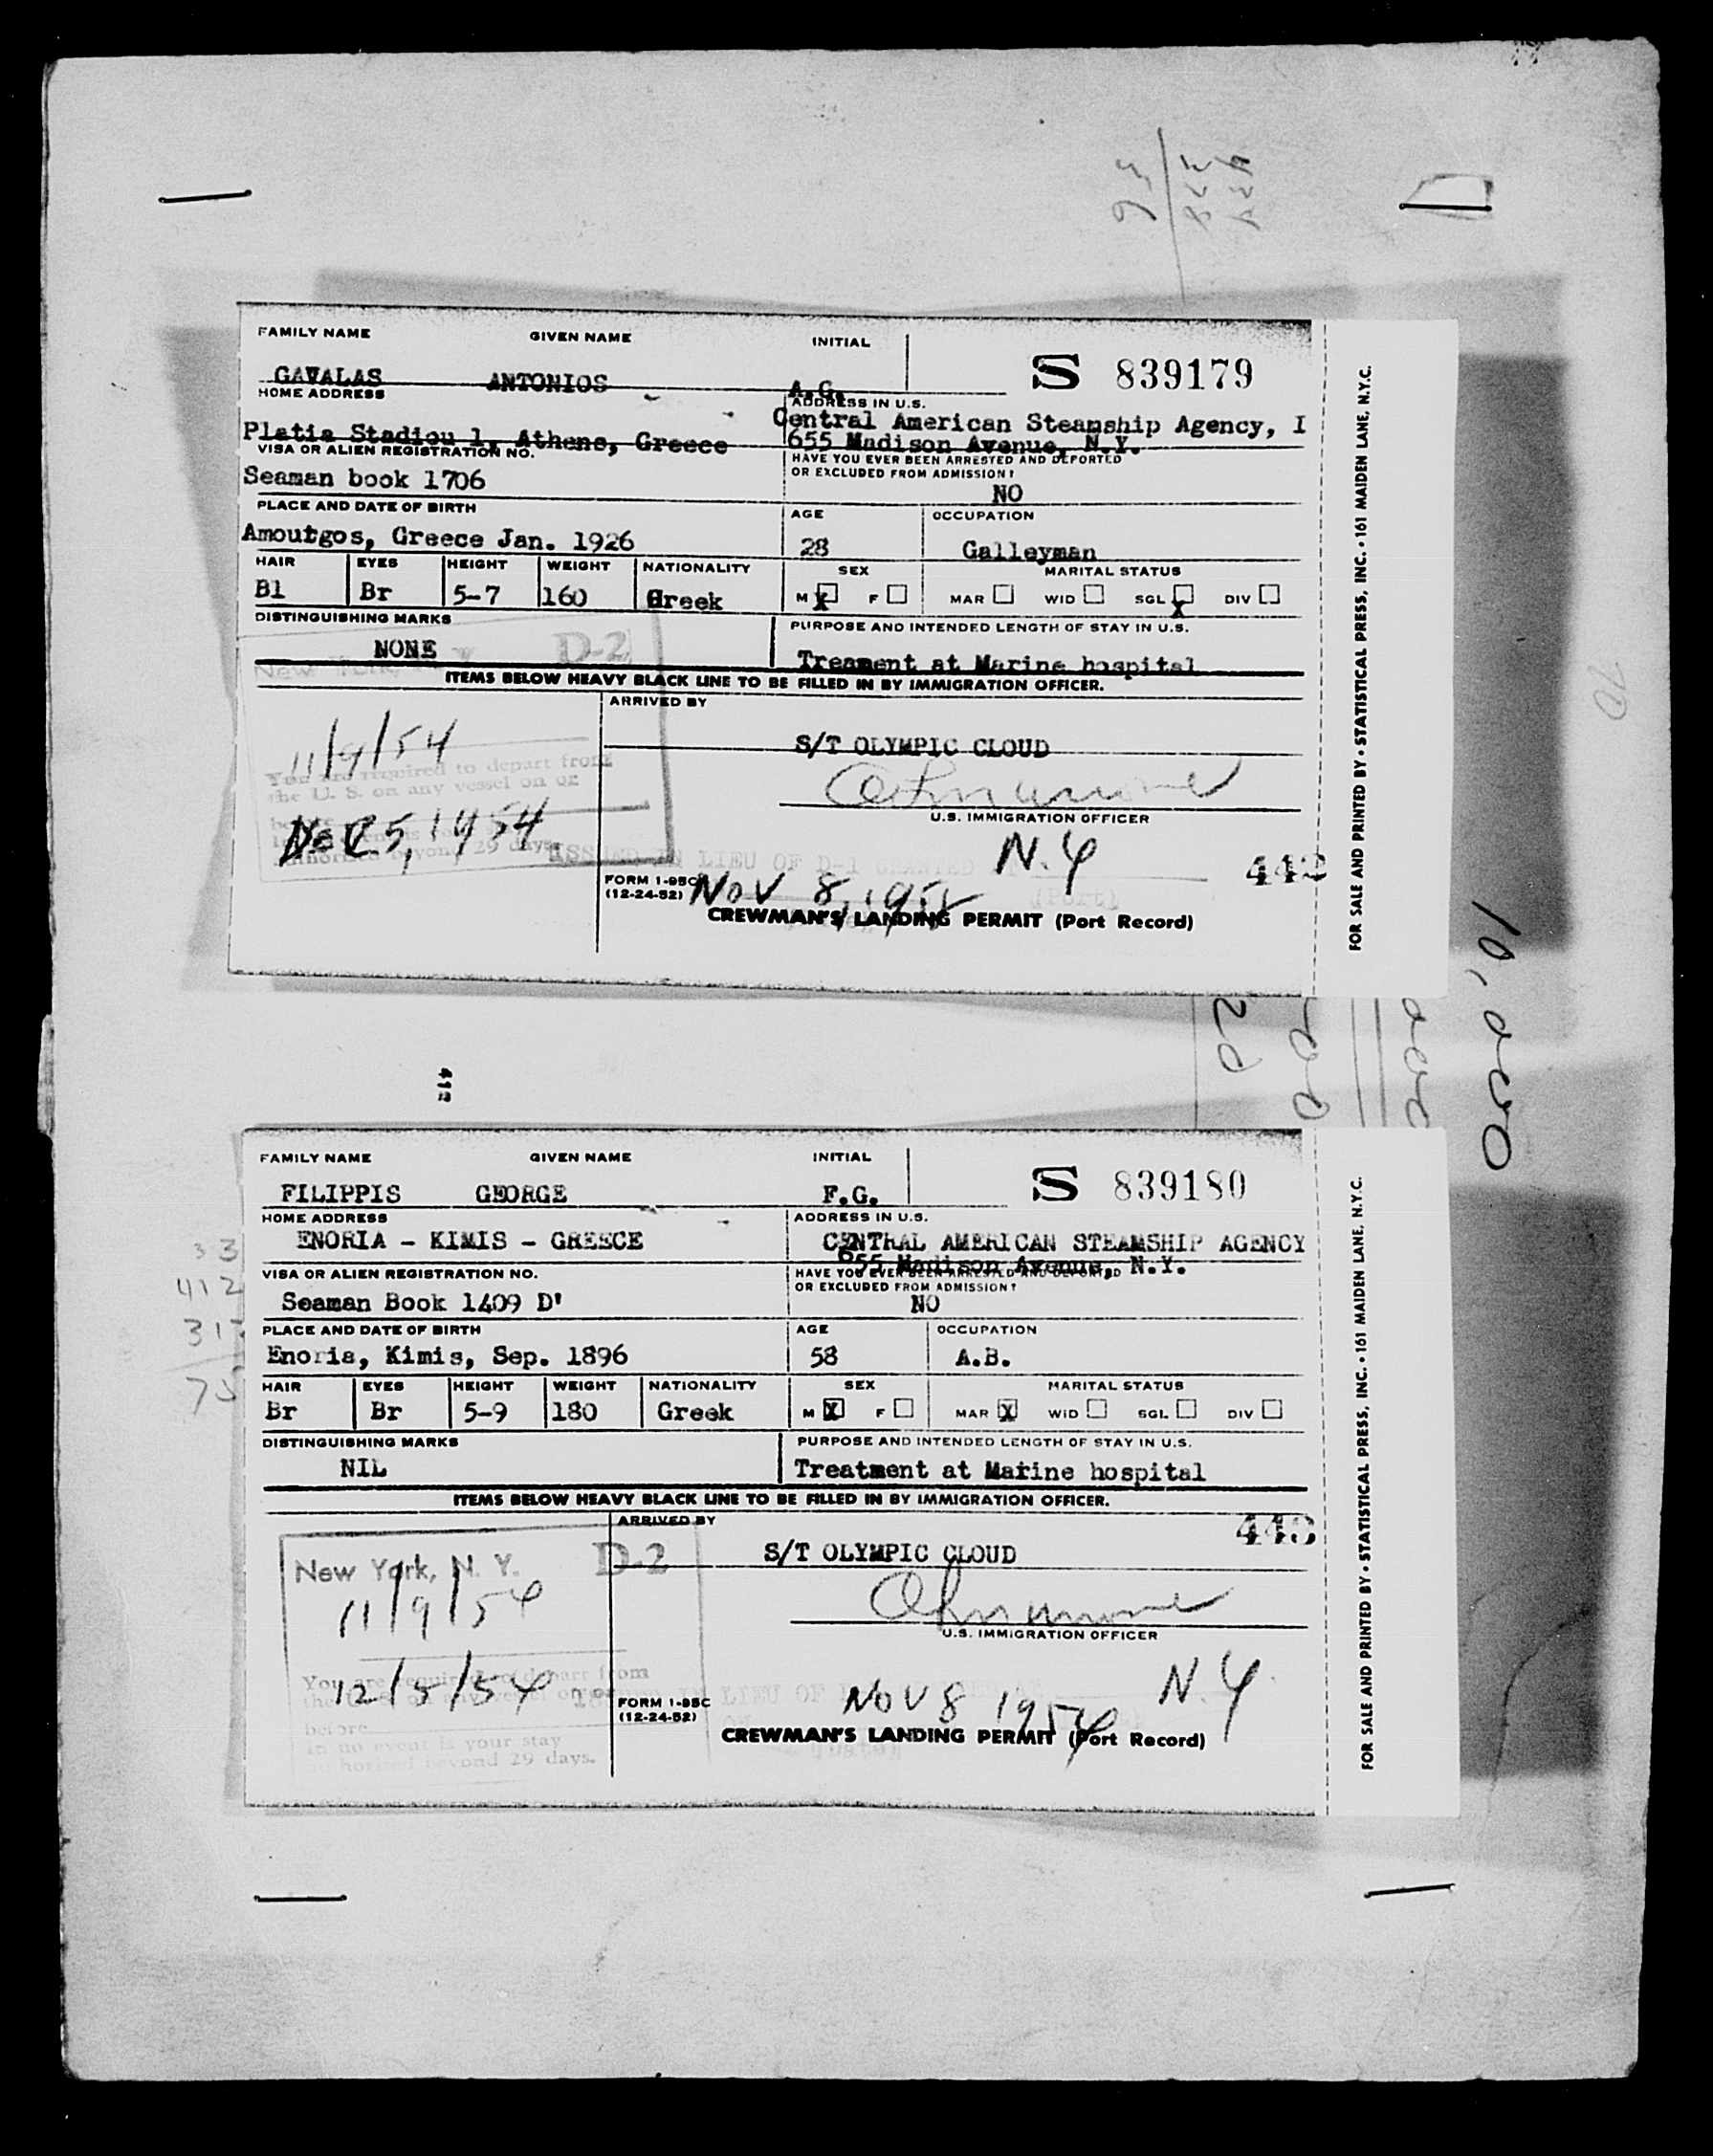 FAMILY NAME GIVEN NAME INITIAL
S 839179
GAVALAS ANTONIOS A.G.
HOME ADDRESS ADDRESS IN U.S.
Central American Steamship Agency, I
Platia Stadiou 1, Athens, Greece 655 Madison Avenue, N.Y.
VISA OR ALIEN REGISTRATION NO. HAVE YOU EVER BEEN ARRESTED AND DEPORTED
OR EXCLUDED FROM ADMISSION?
Seaman book 1706 NO
PLACE AND DATE OF BIRTH AGE OCCUPATION
Amoutgos, Greece Jan. 1926 28 Galleyman
HAIR EYES HEIGHT WEIGHT NATIONALITY SEX MARITAL STATUS
Bl Br 5-7 160 Greek M X F MAR WID SGL X DIV
DISTINGUISHING MARKS PURPOSE AND INTENDED LENGTH OF STAY IN U.S.
NONE D-2 Treament at Marine hospital
New York, N. Y.
ITEMS BELOW HEAVY BLACK LINE TO BE FILLED IN BY IMMIGRATION OFFICER.
ARRIVED BY
11/9/54 S/T OLYMPIC CLOUD
You are required to depart from
the U. S. on any vessel on or
U.S. IMMIGRATION OFFICER
Dec 5, 1954
beyond 29 days.
ISSUED IN LIEU OF D-1 GRANTED
N.Y 442
FORM I-95C
(12-24-52)
NOV 8, 1954
(Port)
CREWMAN'S LANDING PERMIT (Port Record)
FOR SALE AND PRINTED BY • STATISTICAL PRESS, INC. • 161 MAIDEN LANE, N.Y.C.
10,000
20
70
412
FAMILY NAME GIVEN NAME INITIAL
S 839180
FILIPPIS GEORGE F.G.
HOME ADDRESS ADDRESS IN U.S.
ENORIA - KIMIS - GREECE CENTRAL AMERICAN STEAMSHIP AGENCY
655 Madison Avenue, N.Y.
VISA OR ALIEN REGISTRATION NO. HAVE YOU EVER BEEN ARRESTED AND DEPORTED
OR EXCLUDED FROM ADMISSION?
Seaman Book 1409 D' NO
PLACE AND DATE OF BIRTH AGE OCCUPATION
Enoria, Kimis, Sep. 1896 58 A.B.
HAIR EYES HEIGHT WEIGHT NATIONALITY SEX MARITAL STATUS
Br Br 5-9 180 Greek M X F MAR X WID SGL DIV
DISTINGUISHING MARKS PURPOSE AND INTENDED LENGTH OF STAY IN U.S.
NIL Treatment at Marine hospital
ITEMS BELOW HEAVY BLACK LINE TO BE FILLED IN BY IMMIGRATION OFFICER.
ARRIVED BY 443
New York, N. Y. D-2 S/T OLYMPIC CLOUD
11/9/54
U.S. IMMIGRATION OFFICER
You are required to depart from
12/5/54
before
in no event is your stay
authorized beyond 29 days.
IN LIEU OF
FORM I-95C
(12-24-52)
NOV 8 1954 N.Y
CREWMAN'S LANDING PERMIT (Port Record)
FOR SALE AND PRINTED BY • STATISTICAL PRESS, INC. • 161 MAIDEN LANE, N.Y.C.
33
412